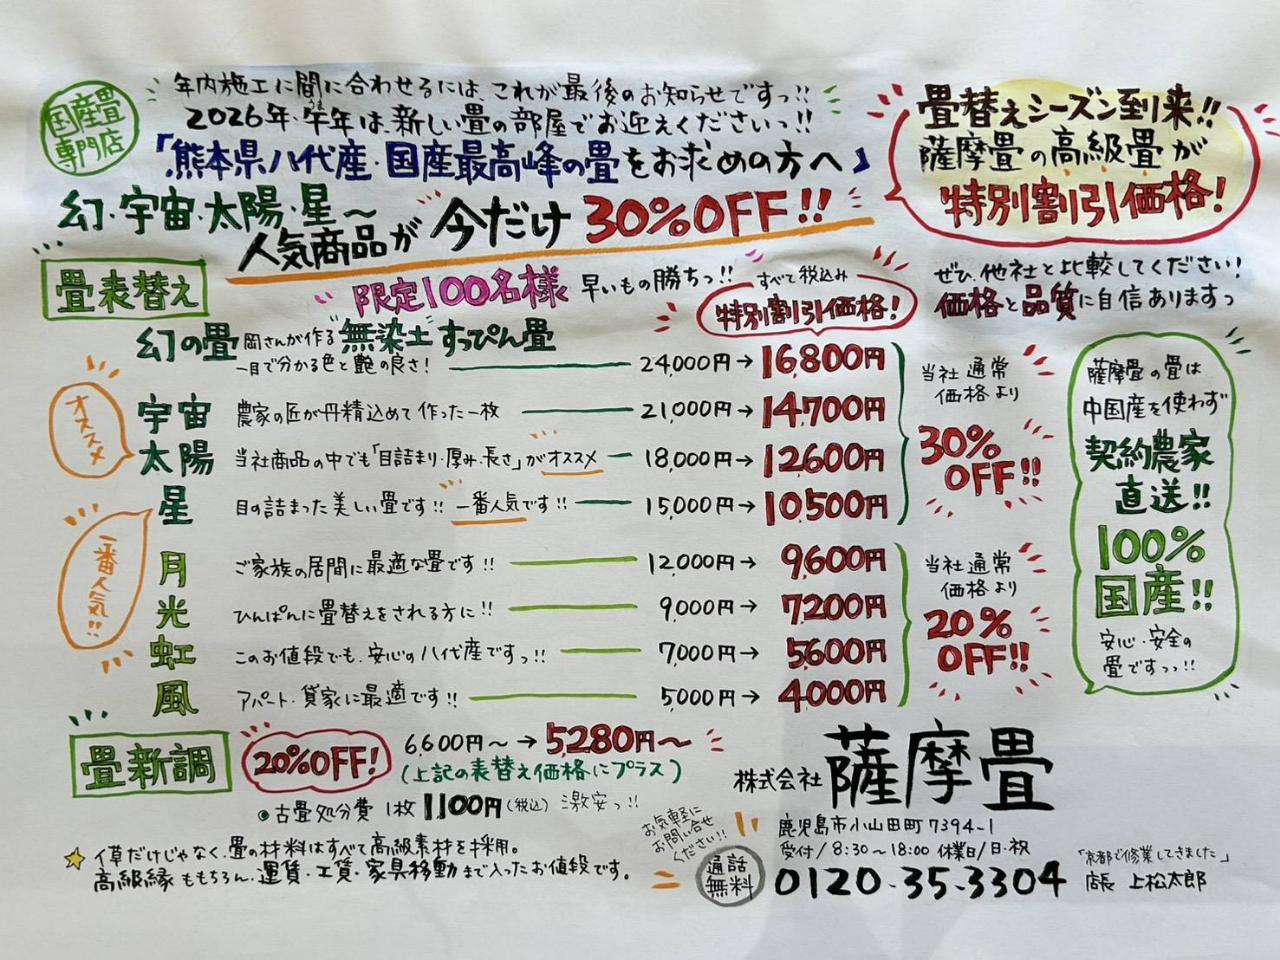 国産畳
専門店
年内施工に間に合わせるには、これが最後のお知らせですっ!!
2026年・午年は、新しい畳の部屋でお迎えくださいっ!!
うま
「熊本県八代産・国産最高峰の畳をお求めの方へ」
幻・宇宙・太陽・星〜
人気商品が今だけ30%OFF!!
畳替えシーズン到来!!
薩摩畳の高級畳が
特別割引価格!
畳表替え
限定100名様 早いもの勝ちっ!!
すべて税込み
特別割引価格!
ぜひ、他社と比較してください!
価格と品質に自信ありますっ
幻の畳 岡さんが作る"無染土"すっぴん畳
一目で分かる色と艶の良さ! 24,000円→16,800円
オススメ
宇宙 農家の匠が丹精込めて作った一枚 21,000円→14,700円
太陽 当社商品の中でも「目詰まり・厚み・長さ」がオススメ 18,000円→12,600円
星 目の詰まった美しい畳です!! 一番人気です!! 15,000円→10,500円
当社通常
価格より
30%
OFF!!
一番人気!!
月 ご家族の居間に最適な畳です!! 12,000円→9,600円
光 ひんぱんに畳替えをされる方に!! 9,000円→7,200円
虹 このお値段でも、安心の八代産ですっ!! 7,000円→5,600円
風 アパート・貸家に最適です!! 5,000円→4,000円
当社通常
価格より
20%
OFF!!
薩摩畳の畳は
中国産を使わず
契約農家
直送!!
100%
国産!!
安心・安全の
畳ですっっ!!
畳新調
20%OFF!
6,600円〜→5,280円〜
(上記の表替え価格にプラス)
●古畳処分費 1枚1,100円(税込) 激安っ!!
☆イ草だけじゃなく、畳の材料はすべて高級素材を採用。
高級縁ももちろん、運賃・工賃・家具移動まで入ったお値段です。
お気軽に
お問い合せ
ください!!
株式会社 薩摩畳
鹿児島市小山田町7394-1
受付/8:30〜18:00 休業日/日・祝
通話
無料
0120-35-3304
「京都で修業してきました」
店長 上松太郎